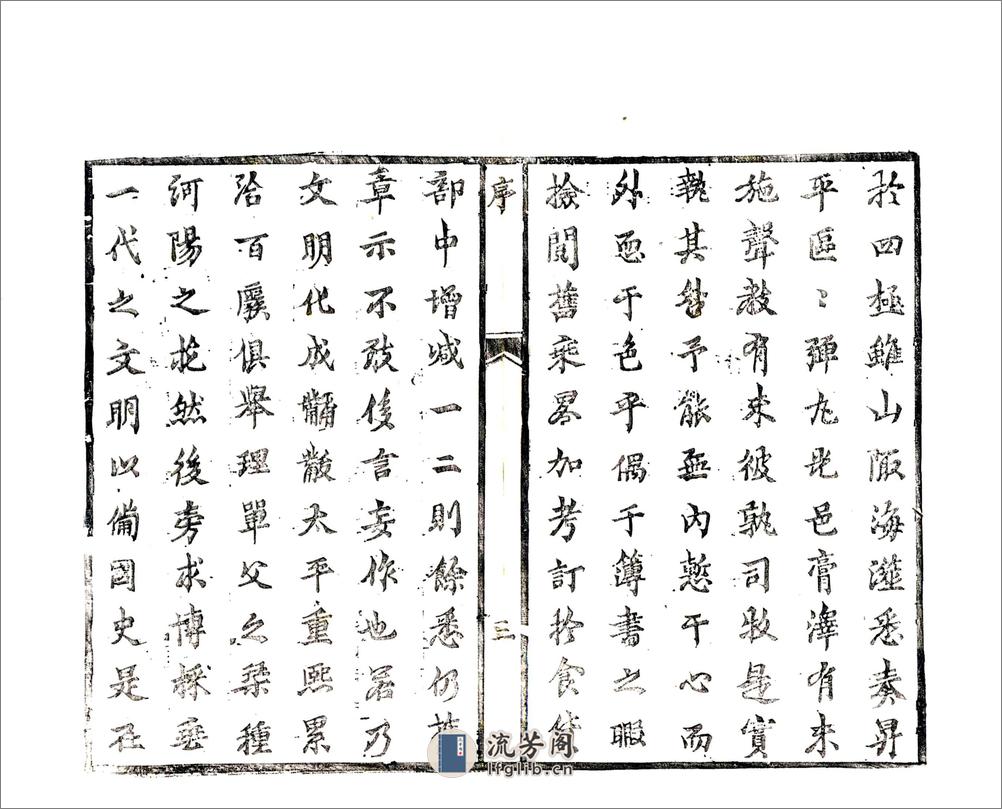 於四極雖山陬海澨悉奏昇
平區〻彈丸光邑膏澤有未
施聲教有未彼孰司牧是實
執其咎予能無內慙于心而
外恧于色乎偶于簿書之暇
撿閱舊乘畧加考訂於食貨
序
三
部中增減一二則餘悉仍舊
章示不敢侈言妄作也若乃
文明化成黼黻太平重熙累
洽百廢俱舉理單父之琹種
河陽之花然後旁求博採垂
一代之文明以備國史是在
流芳阁
lfglib.cn